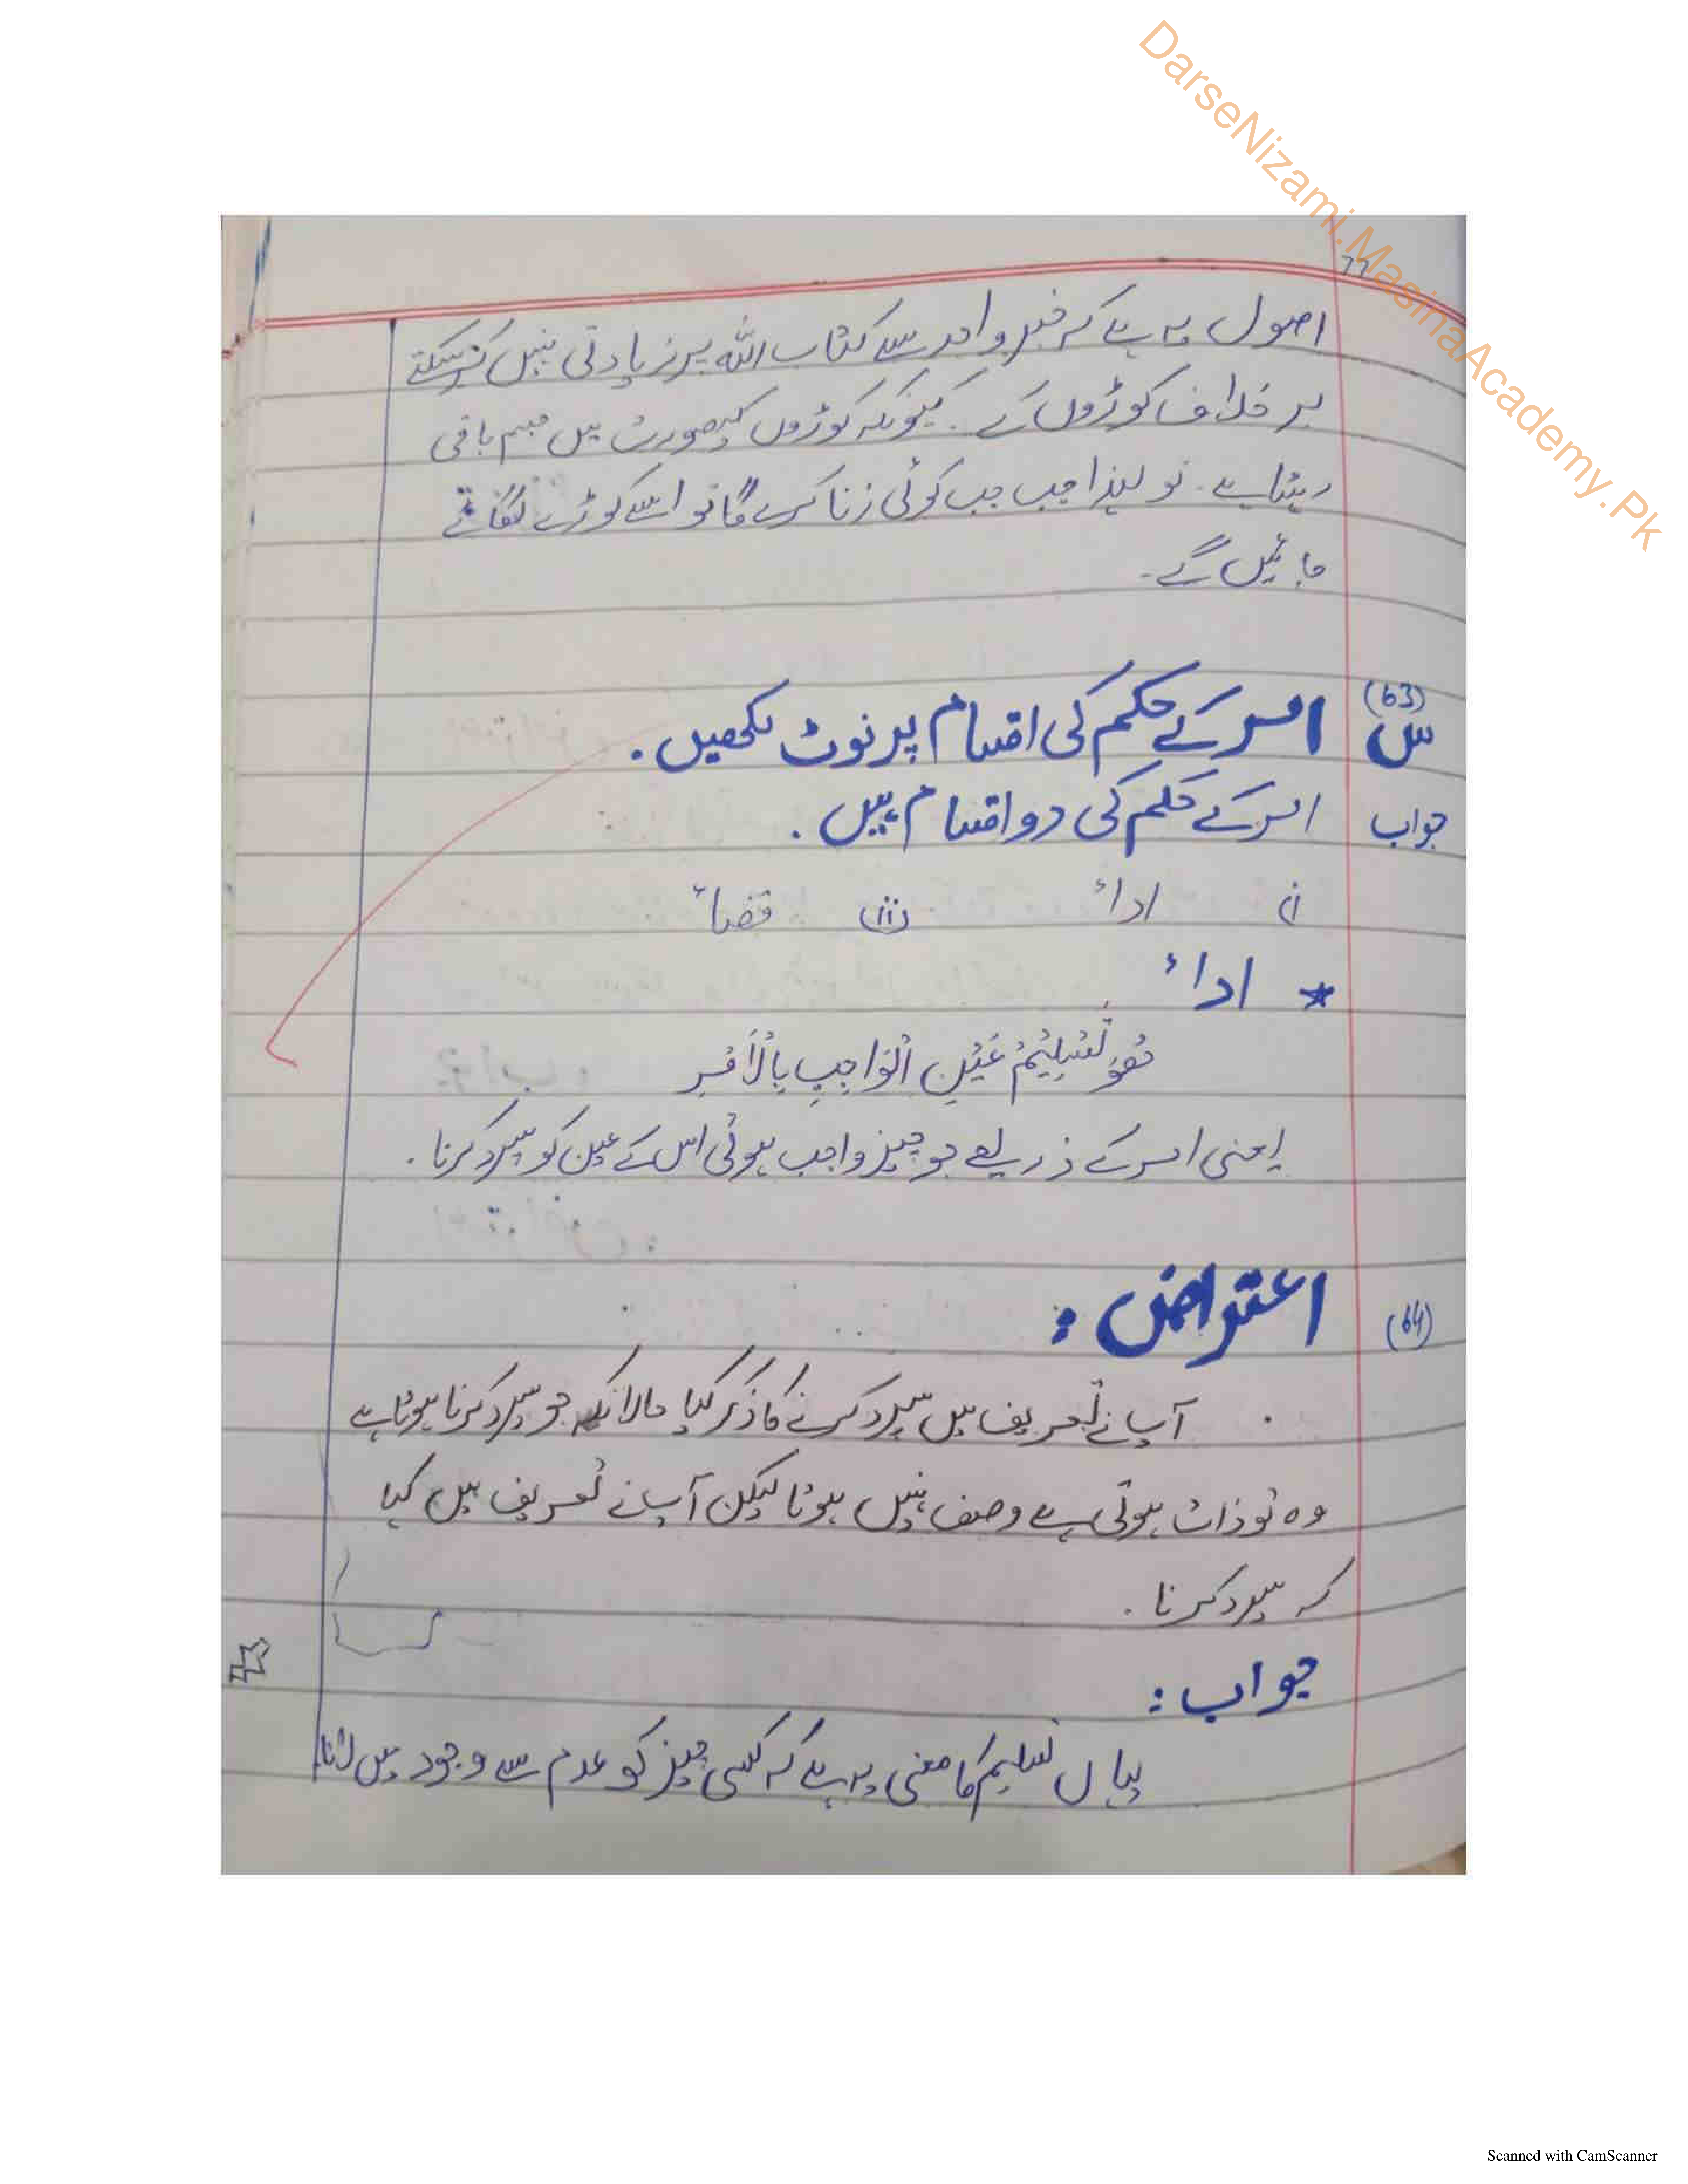 DarseNizami.MasinaAcademy.Pk
77
اصول یہ ہے کہ خبر واحد سے کتاب اللہ پر زیادتی نہیں کر سکتے
بر خلاف کوڑوں کے . کیونکہ کوڑوں کی صورت میں جسم باقی
رہتا ہے . تو لہذا جب جب کوئی زنا کرے گا تو اسے کوڑے لگائے
جائیں گے .
(63)
س امر کے حکم کی اقسام پر نوٹ لکھیں .
جواب امر کے حکم کی دو اقسام ہیں .
(i) اداء (ii) قضاء
* اداء
هُوَ تَسْلِيْمُ عَيْنِ الْوَاجِبِ بِالْاَمْرِ
یعنی امر کے ذریعے جو چیز واجب ہوئی اس کے عین کو سپرد کرنا .
(64) اعتراض :
آپ نے تعریف میں سپرد کرنے کا ذکر کیا حالانکہ جو سپرد کرنا ہوتا ہے
وہ تو ذات ہوتی ہے وصف نہیں ہوتا لیکن آپ نے تعریف میں کہا
کہ سپرد کرنا .
جواب :
یہاں تسلیم کا معنی یہ ہے کہ کسی چیز کو عدم سے وجود میں لانا
Scanned with CamScanner